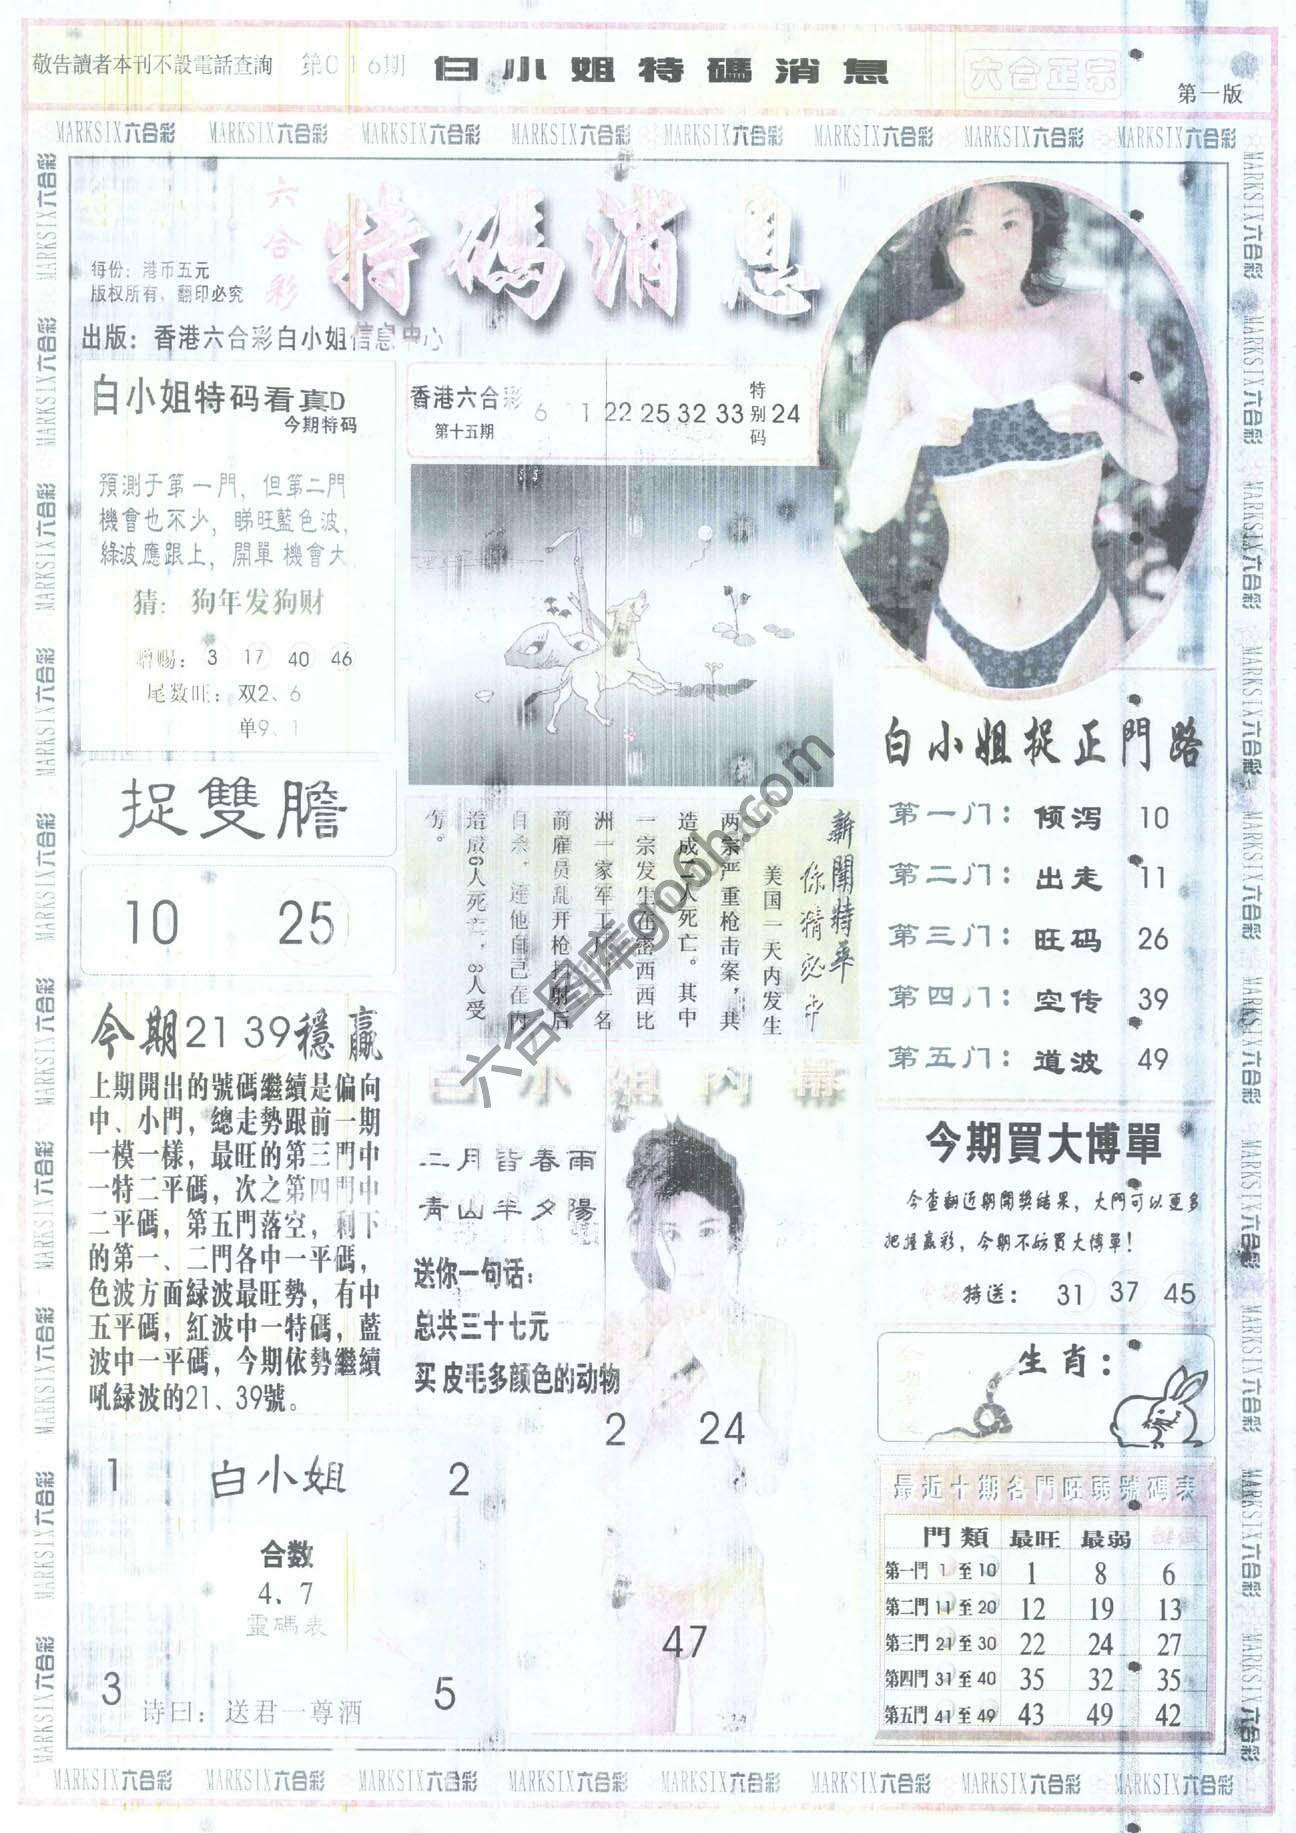 敬告讀者本刊不設電話查詢
第016期
白小姐特碼消息
六合正宗
第一版
MARKSIX六合彩 MARKSIX六合彩 MARKSIX六合彩 MARKSIX六合彩 MARKSIX六合彩 MARKSIX六合彩 MARKSIX六合彩 MARKSIX六合彩
六合彩
特碼消息
每份：港币五元
版权所有，翻印必究
出版：香港六合彩白小姐信息中心
白小姐特码看真D
今期特码
預測于第一門，但第二門
機會也不少，睇旺藍色波，
綠波應跟上，開單機會大
猜：狗年发狗财
赠赐：3 17 40 46
尾数旺：双2、6
单9、1
香港六合彩
第十五期
6 1 22 25 32 33
特别码
24
捉雙膽
10 25
新聞特華
你猜必中
美国一天内发生
两宗严重枪击案，共
造成 人死亡。其中
一宗发生在密西西比
洲一家军工厂，一名
前雇员乱开枪扫射后
自杀，连他自己在内
造成6人死亡，8人受
伤。
白小姐捉正門路
第一门：倾泻 10
第二门：出走 11
第三门：旺码 26
第四门：空传 39
第五门：道波 49
今期21 39穩贏
上期開出的號碼繼續是偏向
中、小門，總走勢跟前一期
一模一樣，最旺的第三門中
一特二平碼，次之第四門中
二平碼，第五門落空，剩下
的第一、二門各中一平碼，
色波方面緑波最旺勢，有中
五平碼，紅波中一特碼，藍
波中一平碼，今期依勢繼續
吼緑波的21、39號。
白小姐內幕
二月皆春雨
青山半夕陽
送你一句话：
总共三十七元
买 皮毛多颜色的动物
2 24
47
今期買大博單
今查翻近期開獎結果，大門可以更多
把握贏彩，今期不妨買大博單！
特送：31 37 45
生肖：
1 白小姐 2
合数
4、7
靈碼表
3 5
诗曰：送君一尊酒
最近十期各門旺弱號碼表
門類 最旺 最弱
第一門 1 至 10 1 8 6
第二門 11 至 20 12 19 13
第三門 21 至 30 22 24 27
第四門 31 至 40 35 32 35
第五門 41 至 49 43 49 42
MARKSIX六合彩 MARKSIX六合彩 MARKSIX六合彩 MARKSIX六合彩 MARKSIX六合彩 MARKSIX六合彩 MARKSIX六合彩 MARKSIX六合彩
六合图库go6h.com